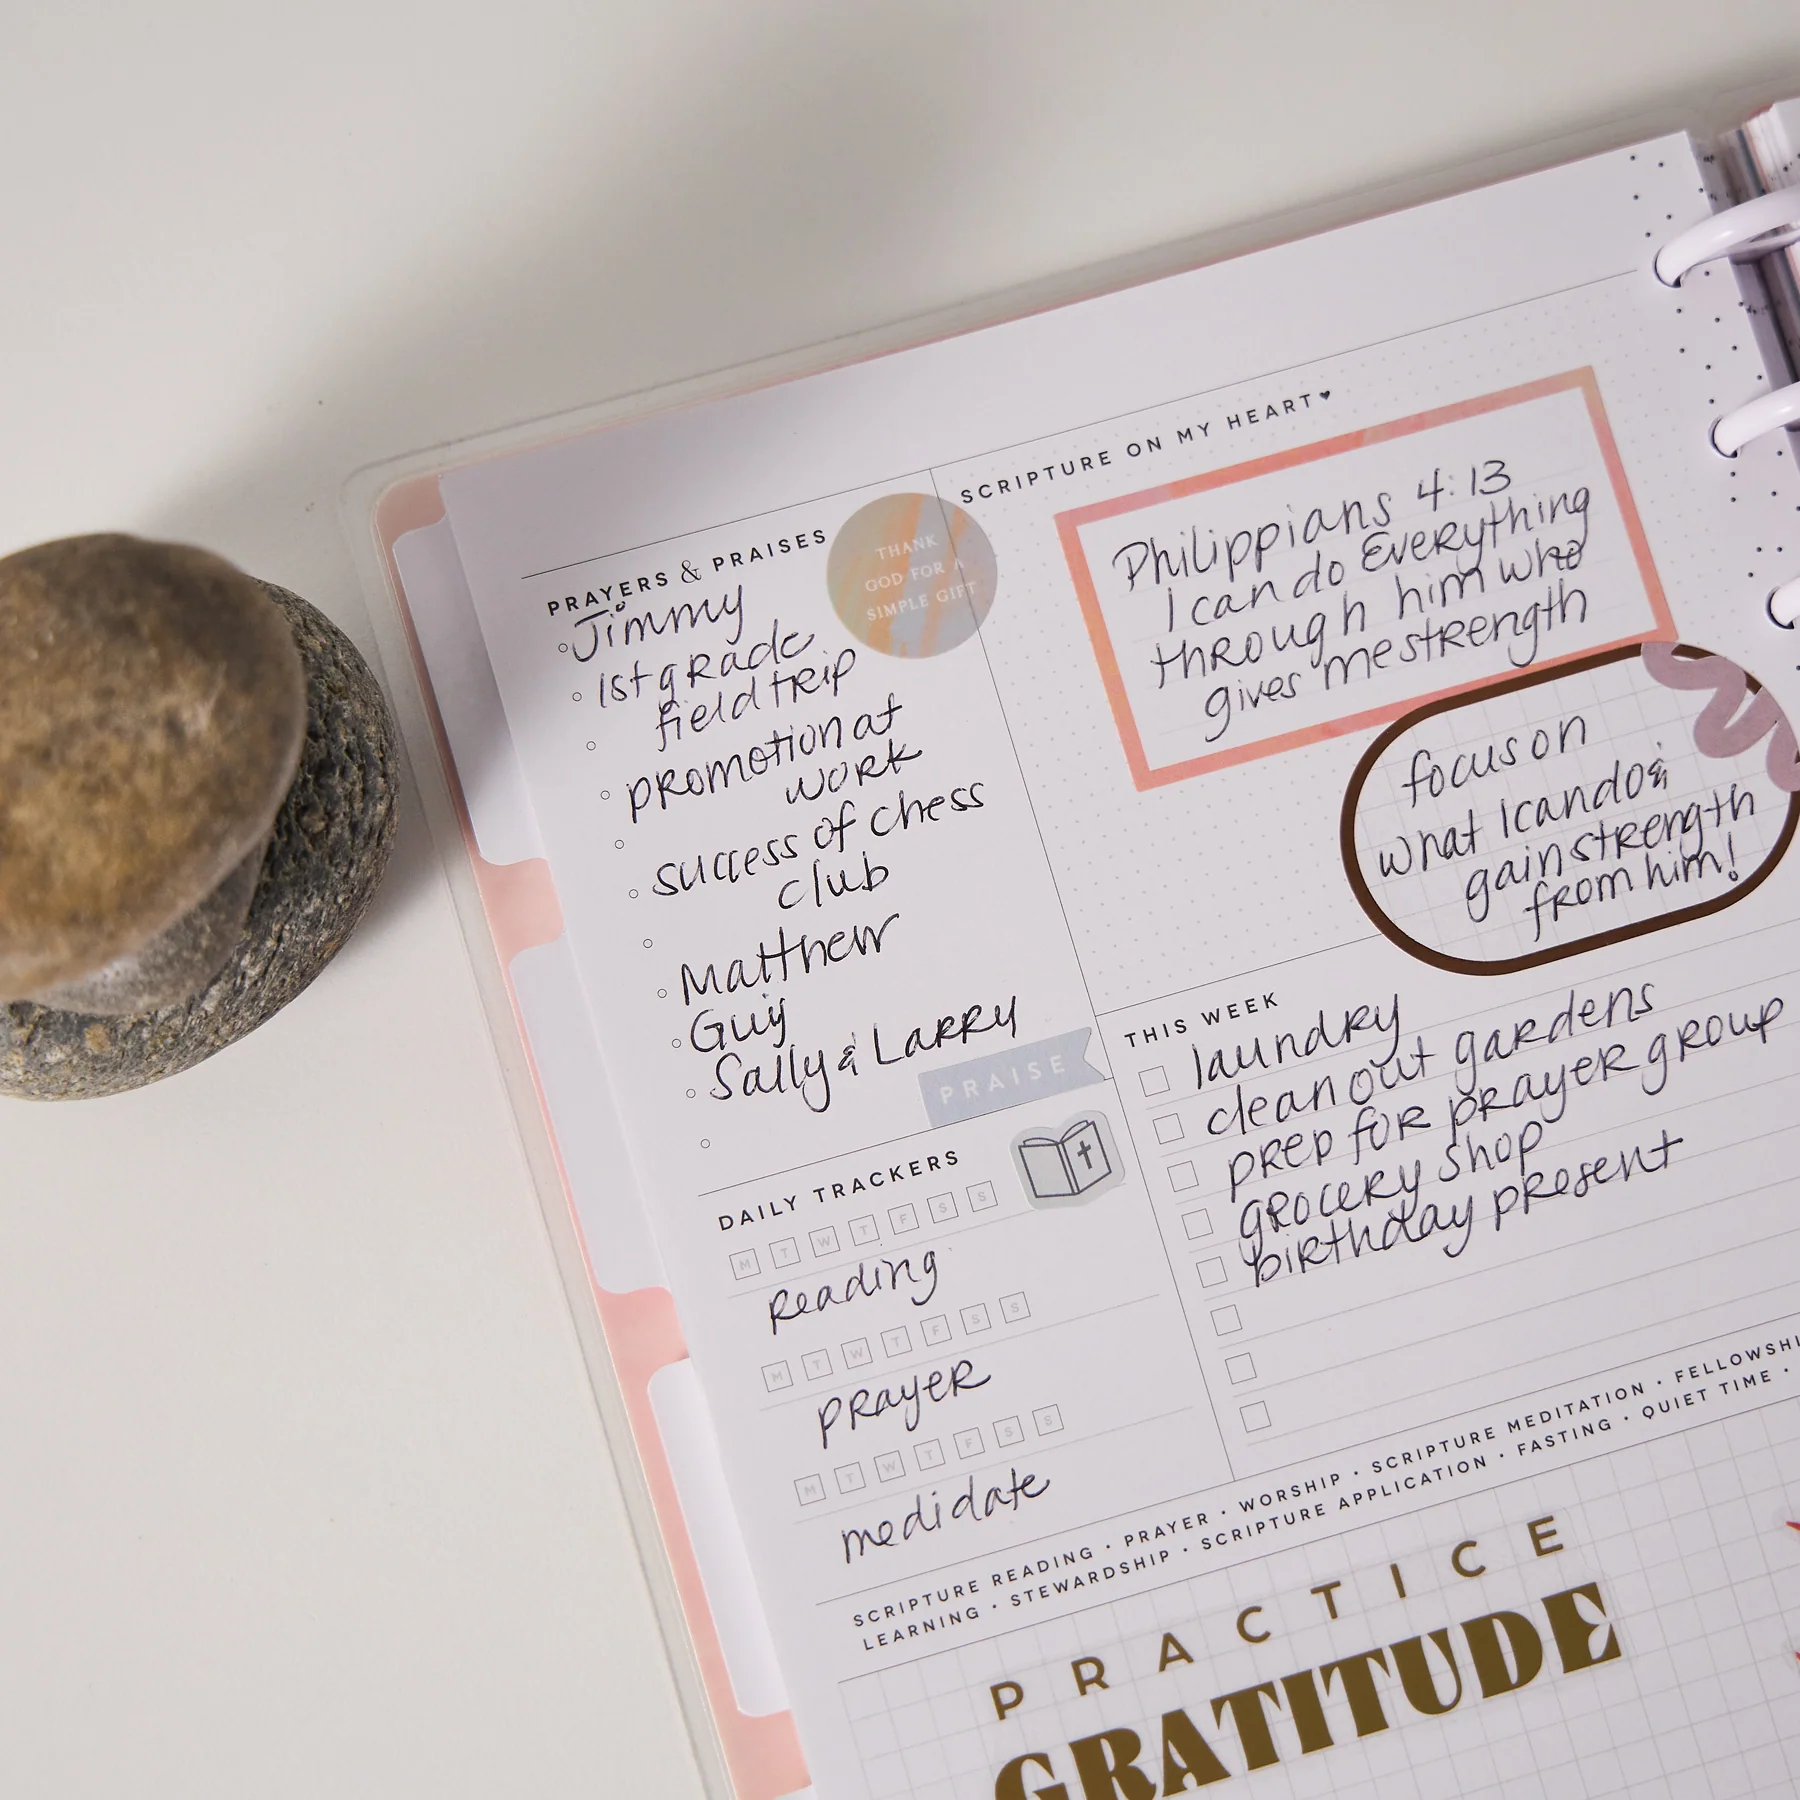 PRAYERS & PRAISES
Jimmy
1st grade
field trip
promotion at
work
success of chess
club
Matthew
Guy
Sally & Larry
THANK
GOD FOR A
SIMPLE GIFT
PRAISE
SCRIPTURE ON MY HEART♥
Philippians 4:13
I can do Everything
through him who
gives me strength
focus on
what I can do &
gain strength
from him!
THIS WEEK
laundry
clean out gardens
prep for prayer group
grocery shop
birthday present
DAILY TRACKERS
M T W T F S S
Reading
M T W T F S S
prayer
M T W T F S S
medidate
SCRIPTURE READING • PRAYER • WORSHIP • SCRIPTURE MEDITATION • FELLOWSHI
LEARNING • STEWARDSHIP • SCRIPTURE APPLICATION • FASTING • QUIET TIME •
PRACTICE
GRATITUDE